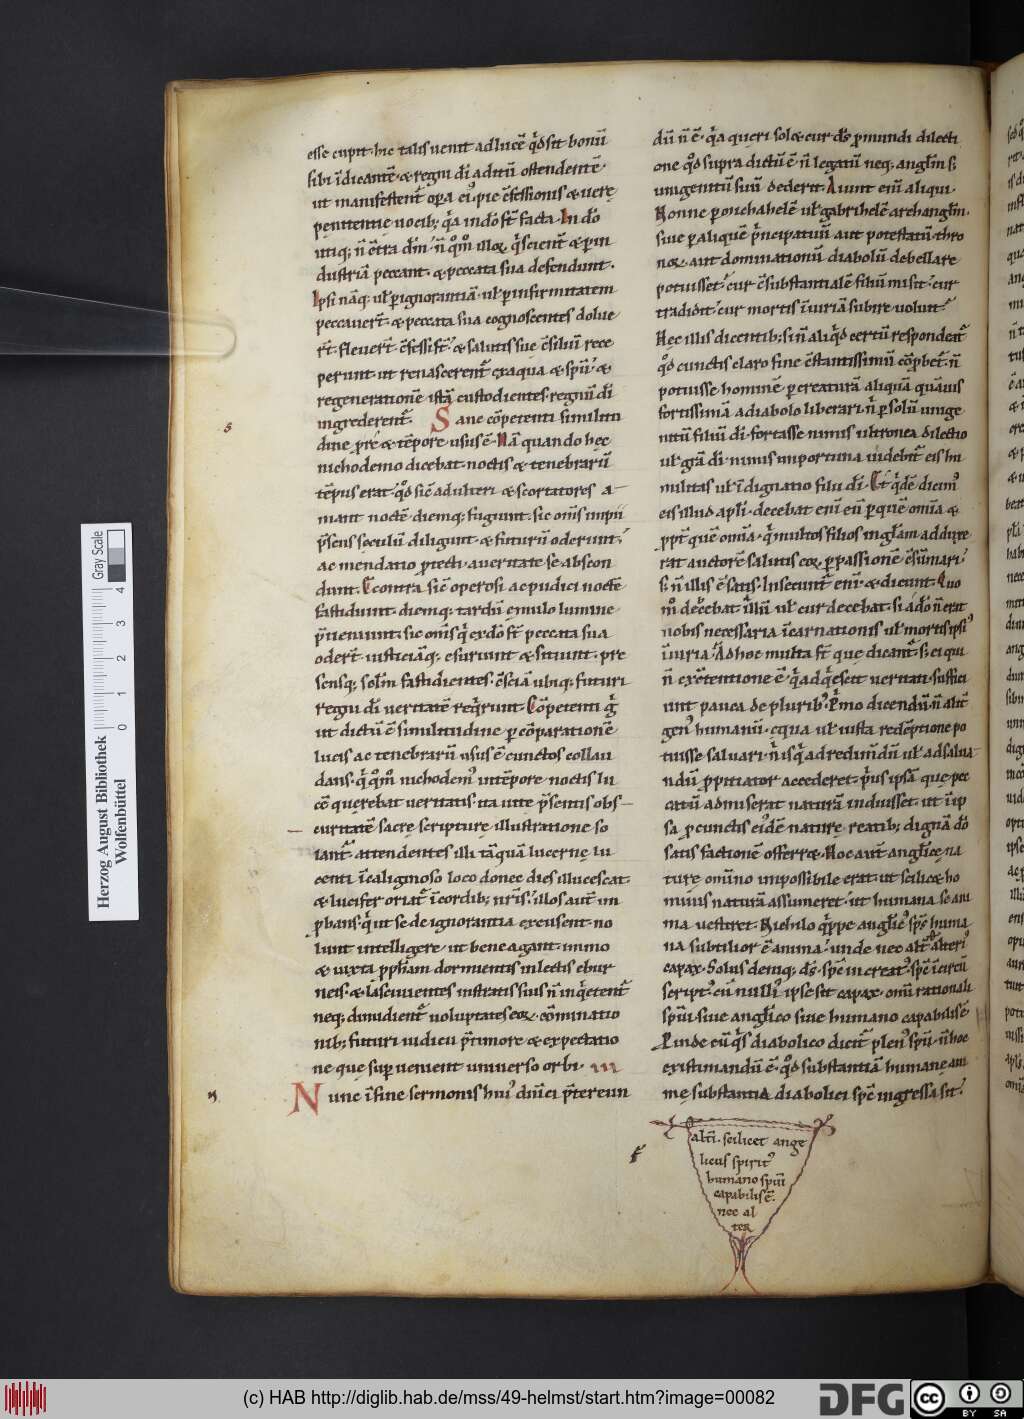 esse cupit. hic talis uenit ad lucē qd sit bonū
sibi īdicantē. & regni di aditū ostendentē.
ut manifestent opa ei. pie cfessionis & uerę
penitentię uocib; qa in do st facta. In do
utiq; ñ cta dm. ñ qm illoꝝ q scient & pin
dustriā peccant. & peccata sua defendunt.
Ipsi nāq. ul pignorantiā. ul pinfirmitatem
peccauert. & peccata sua cognoscentes dolue
rt. fleuert. cfessi st. & salutis suę csiliū rece
perunt. ut renascerent ex aqua & spū. &
regenerationē istā custodientes. regnū di
ingrederent. Sane cōpetenti similitu
dine pre & tēpore usus ē. Nā quando hęc
nichodemo dicebat. noctis & tenebrarū
tēpus erat. qd sic adulteri & scortatores a
mant noctē diemq; fugiunt. sic oms impii
psens sęculū diligunt & futurū oderunt.
ac mendatio ptecti. a ueritate se abscon
dunt. Econtra sic operosi ac pudici noctē
fastidiunt. diemq; tardū ęmulo lumine
pueniunt. sic oms q ex do st peccata sua
odert. iusticiāq; esuriunt & sitiunt. pre
sensq; solm fastidientes. csciā ubiq; futuri
regni di ueritatē reqrunt. Cōpetenti g
ut dictū ē similitudine per cōparationē
lucis ac tenebrarū usus ē cunctos collau
dans. q qm nichodem intēpore noctis lu
cē querebat ueritatis. ita uitę psentis obs
curitatē sacrę scripturę illustratione so
lant. attendentes illi tāquā lucernę lu
centi ī caliginoso loco donec dies illucescat.
& lucifer oriat ī cordib; nris. illos aut im
pbans. q ut se de ignorantia excusent. no
lunt intelligere. ut bene agant. immo
& iuxta ppham dormientes in lectis ebur
neis. & lasciuientes in stratis suis ñ inqetent
neq; dimidient uoluptates eoꝝ. cōminatio
nib; futuri iudicii ptimore & expectatio
ne que sup uenient uniuerso orbi. III
Nunc ī fine sermonis hui dnici pretereun
dū ñ ē. qa queri solet. cur ds p mundi dilecti
one qd supra dictū ē ñ legatū neq; anglm s;
unigenitū suū dederit. Aiunt enī aliqui.
Nonne p michahelē ul gabrihelē archanglm.
siue p aliquē pncipatuū aut potestatū. thro
noꝝ. aut dominationū diabolū debellare
potuisset. cur csubstantialē filiū misit. cur
tradidit. cur mortis iniuriā subire uoluit.
Nec illis dicentib; si ñ aliqd certū respondeat
qd cunctis claro fine cstantissimū cōpbet. ñ
potuisse hominē p creaturā aliquā quāuis
fortissimā a diabolo liberari. ñ p solū unige
nitū filiū di. fortasse nimis ultronea dilectio
ul gra di nimis importuna uidebit eis hu
militas ul īdignatio filii di. Et qdē dicim
eis illud apli. decebat enī eū p quē omia &
ppt quē omia. q multos filios in glam adduxe
rat auctorē salutis eoꝝ. p passionē csumari.
s; ñ illis ē satis. Insecunt enī & dicunt. Quo
mo decebat illū ul cur decebat. si a do ñ erat
nobis necessaria īcarnationis ul mortis ipsi
iniuria. Ad hoc multa st que dicant. s; ei qui
ñ ex ctentione ē. q adqescit ueritati. suffici
unt pauca de plurib. Pmo dicendū. ñ aliter
gen humanū. ex qua ul iusta redēptione po
tuisse saluari. nisi q ad redimdū ul ad salua
ndū ppitiator accederet. prius ipsā que pec
catū admiserat naturā induisset. ut ī ip
sa p cunctis eidē naturę reatib; dignā do
satis factionē offerret. Hoc aut anglicę na
turę omīno impossibile erat. ut scilicet ho
minis naturā assumeret. ut humana se ani
ma uestiret. Nichilo qppe anglic sps huma
na subtilior ē anima. unde nec alt alteri
capax. Solus deniq; ds. sps increat. sps īcircū
script. cū nulli ipse sit capax. omi rationali
spui. siue anglico siue humano capabilis ē.
Proinde cū qs diabolico dicit plen spu. ñ hoc
existimandū ē. qd substantiā humanę ani
mę substantia diabolici sps ingressa sit.
alti. scilicet ange
licus spirit
humano spui
capabilis ē.
nec al
ter
Herzog August Bibliothek
Wolfenbüttel
Gray Scale
0 1 2 3 4
(c) HAB http://diglib.hab.de/mss/49-helmst/start.htm?image=00082
DFG
cc BY SA